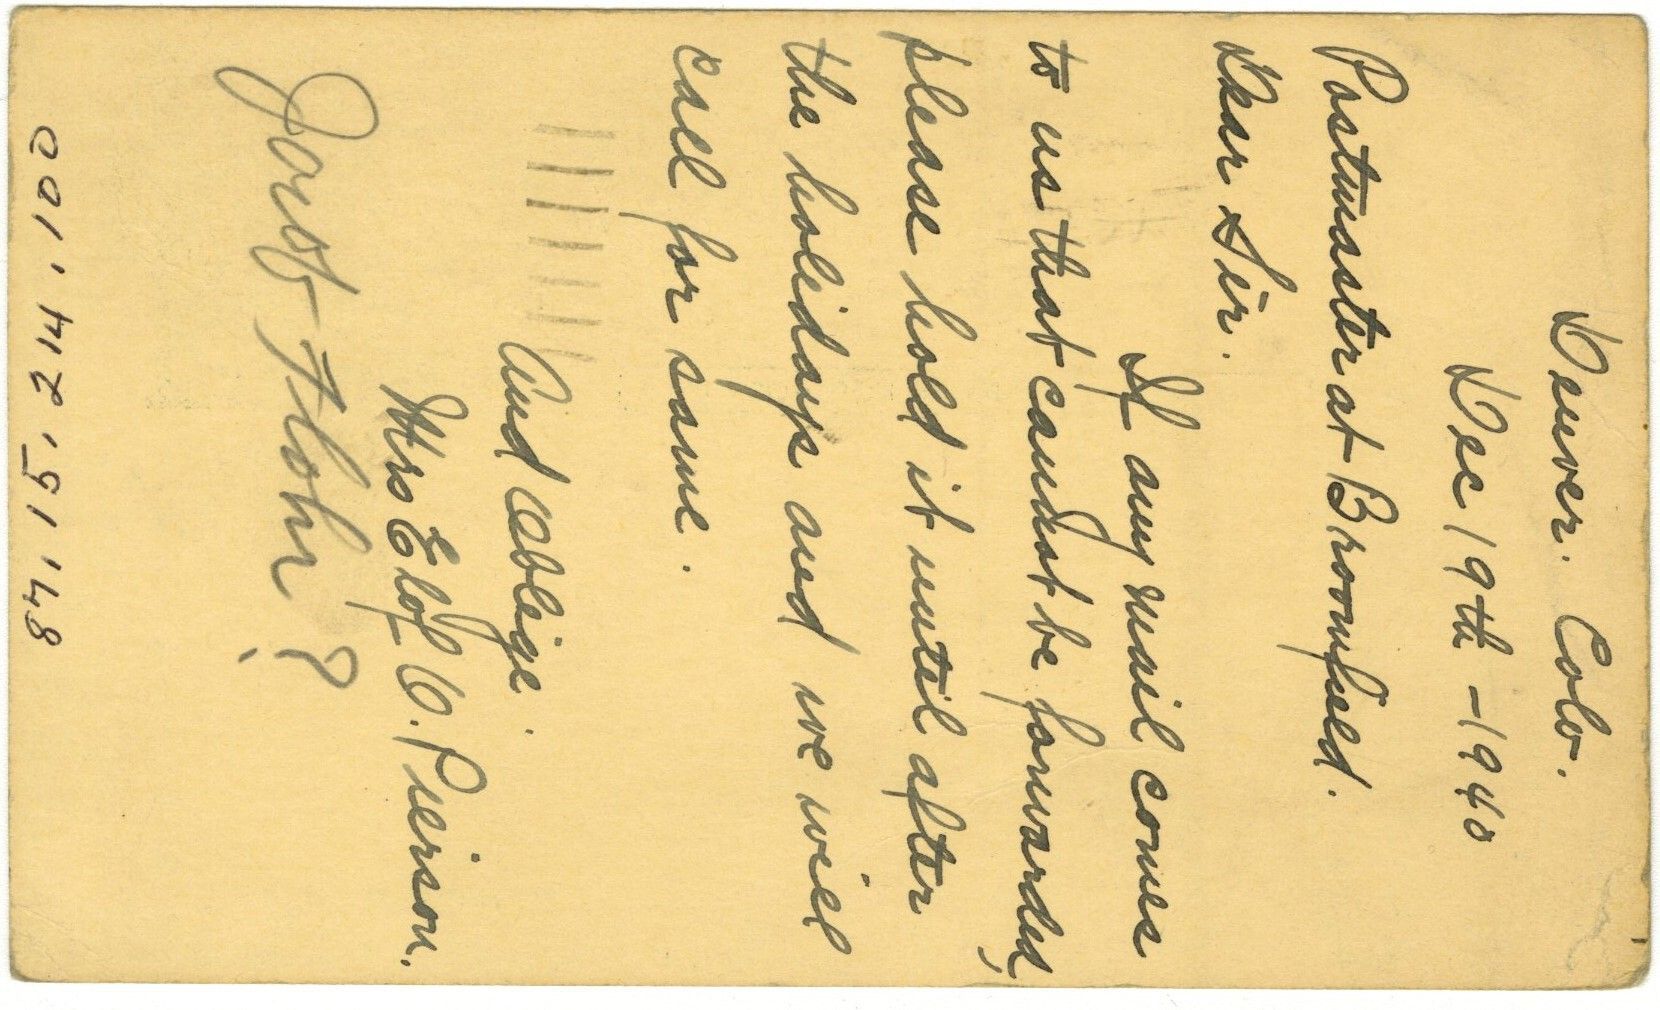 Denver. Colo.
Dec 19th - 1940
Postmaster at Broomfield.
Dear Sir.
If any mail comes
to us that cannot be forwarded,
please hold it until after
the holidays and we will
call for same.
And oblige.
Mrs Elof C. Pierson.
?
2001.142.151.148